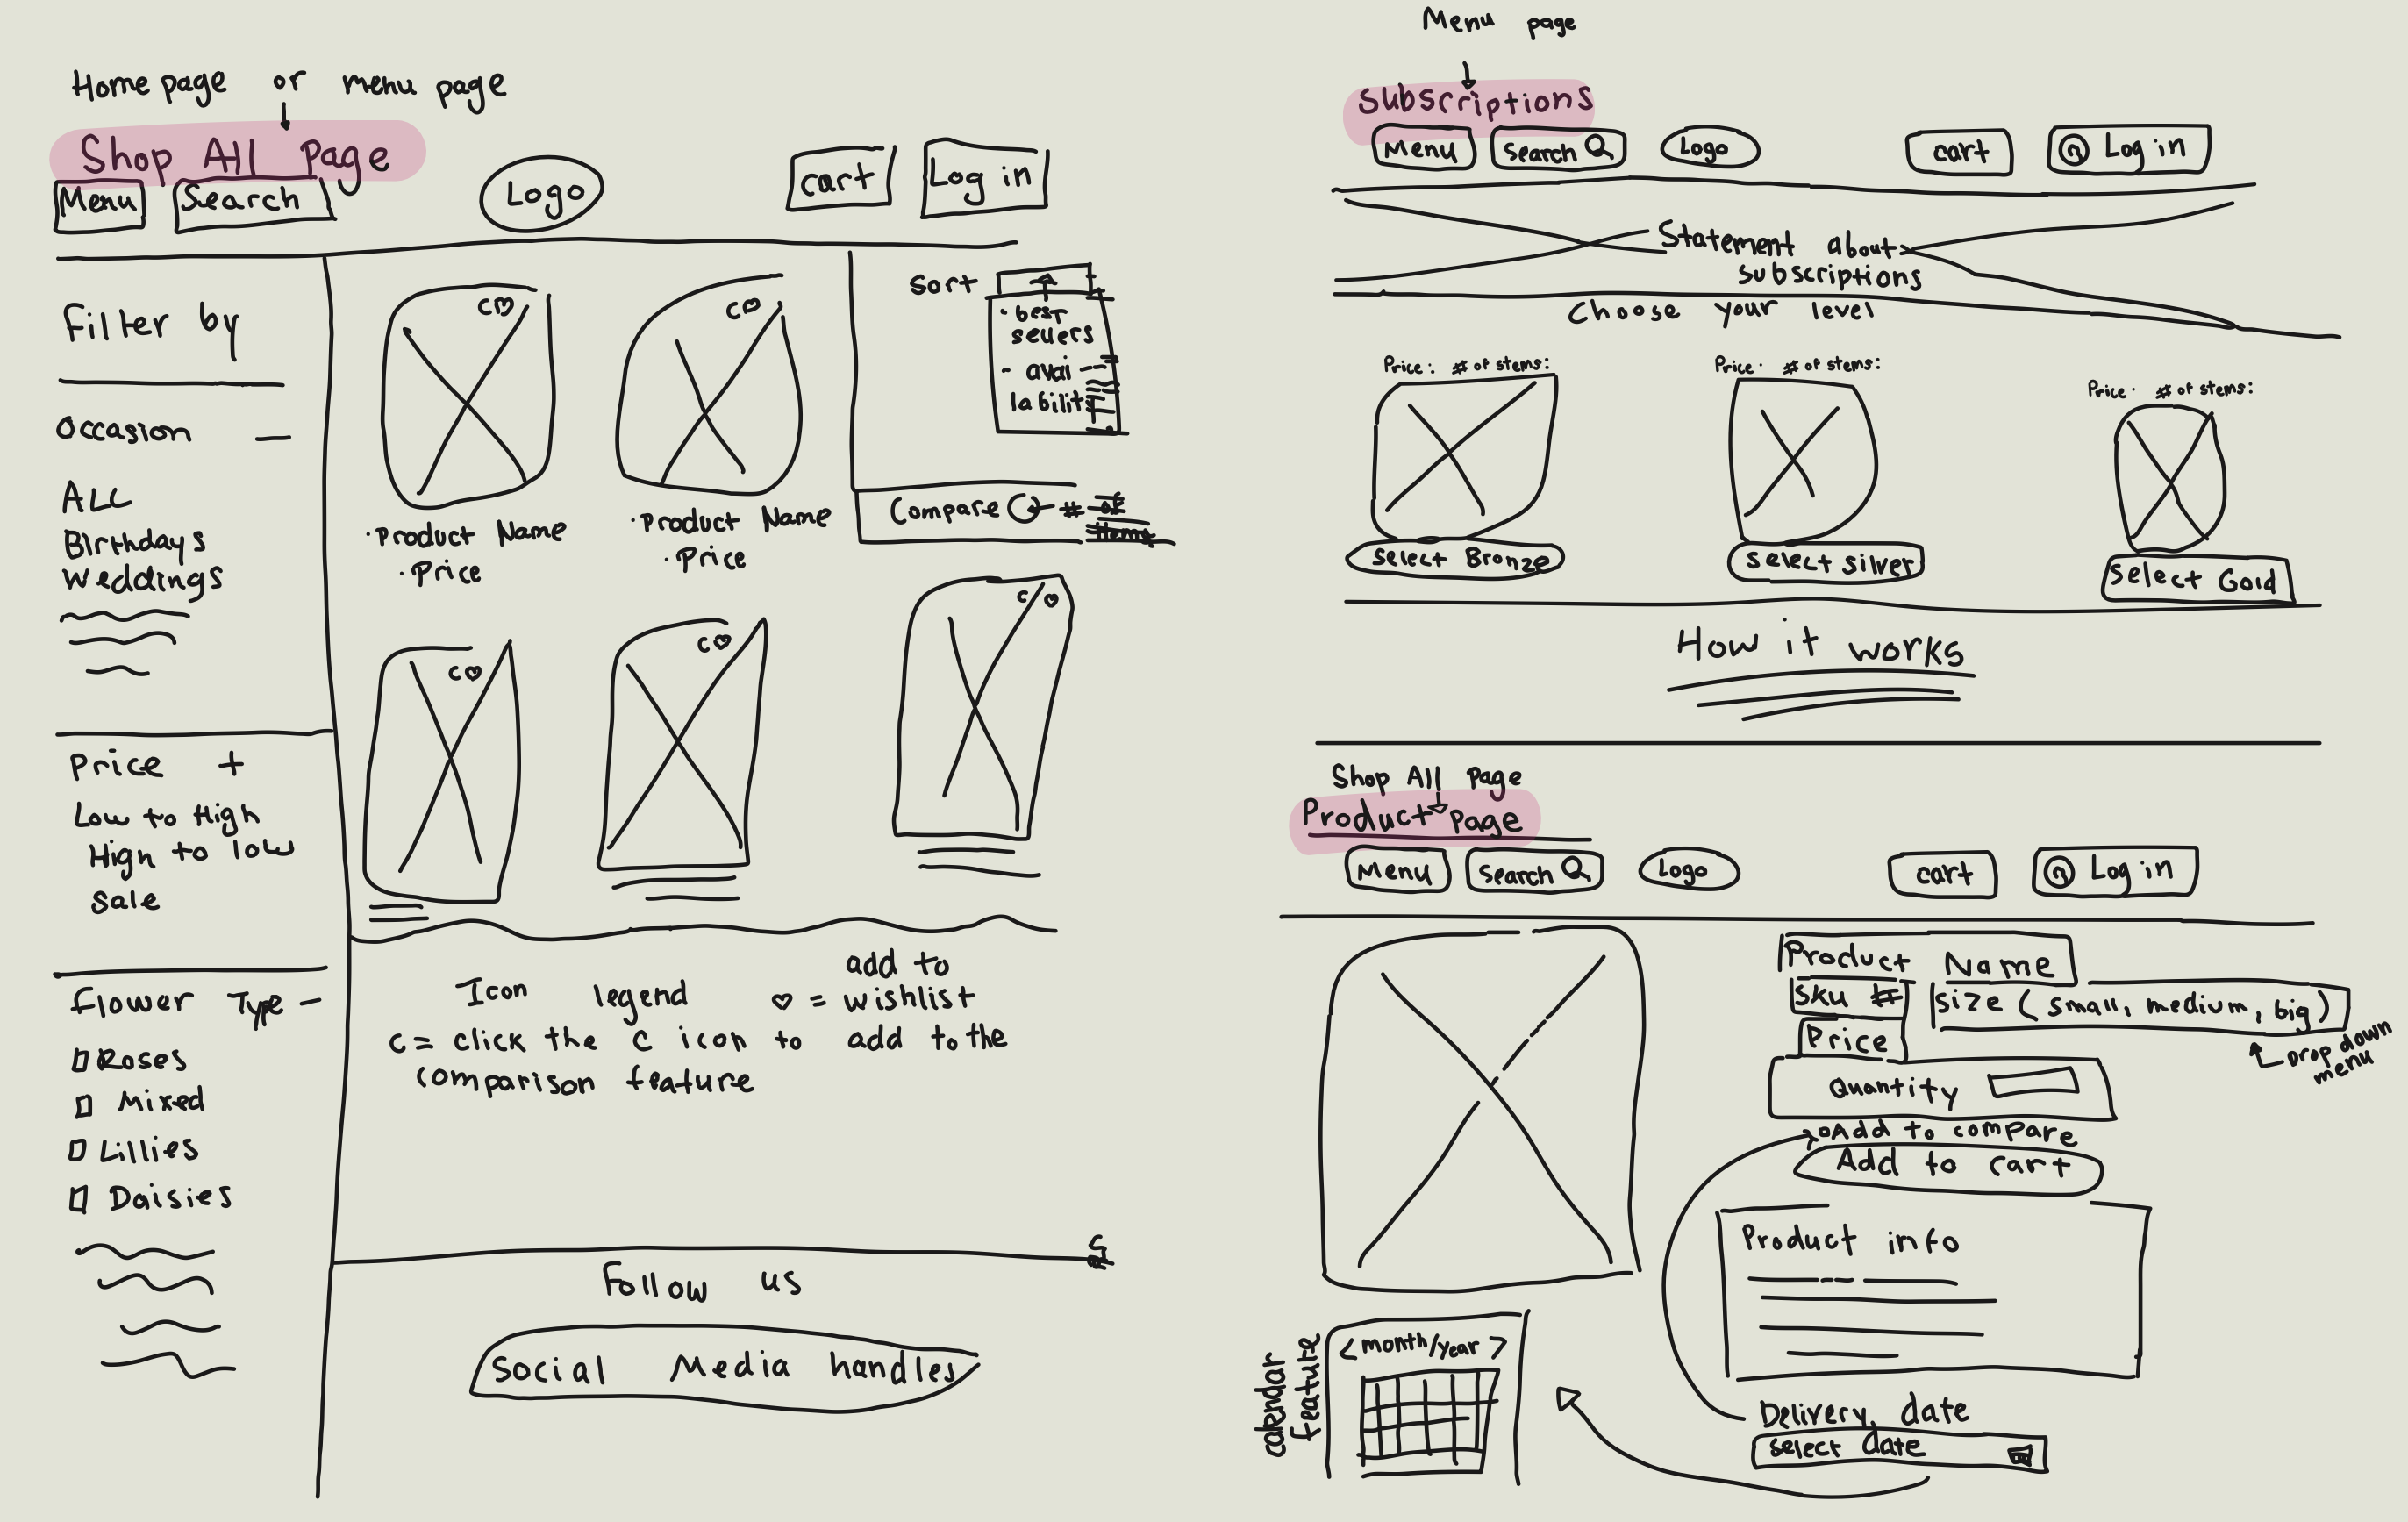 Home page or menu page
Shop All Page
Menu
Search
Logo
cart
Log in
Filter by
Occasion —
ALL
Birthdays
Weddings
Price +
Low to High
High to low
Sale
Flower Type —
Roses
Mixed
Lillies
Daisies
C♡
C♡
• Product Name
• Price
• Product Name
• Price
Sort
• best
sellers
- avai
labilit
Compare C ← # of
items
C♡
C♡
C♡
Icon legend
♡ = add to
wishlist
C = click the C icon to add to the
comparison feature
Follow us
Social Media handles
Menu page
Subscriptions
Menu
Search
Logo
cart
Log in
Statement about
subscriptions
Choose your level
Price: # of stems:
Price: # of stems:
Price: # of stems:
Select Bronze
Select Silver
Select Gold
How it works
Shop All Page
Product Page
Menu
Search
Logo
cart
Log in
Product Name
Sku #
Size (small, medium, big)
Drop down
menu
Price
Quantity
Add to compare
Add to cart
Product info
Delivery date
Select date
calendar
feature
< month/year >